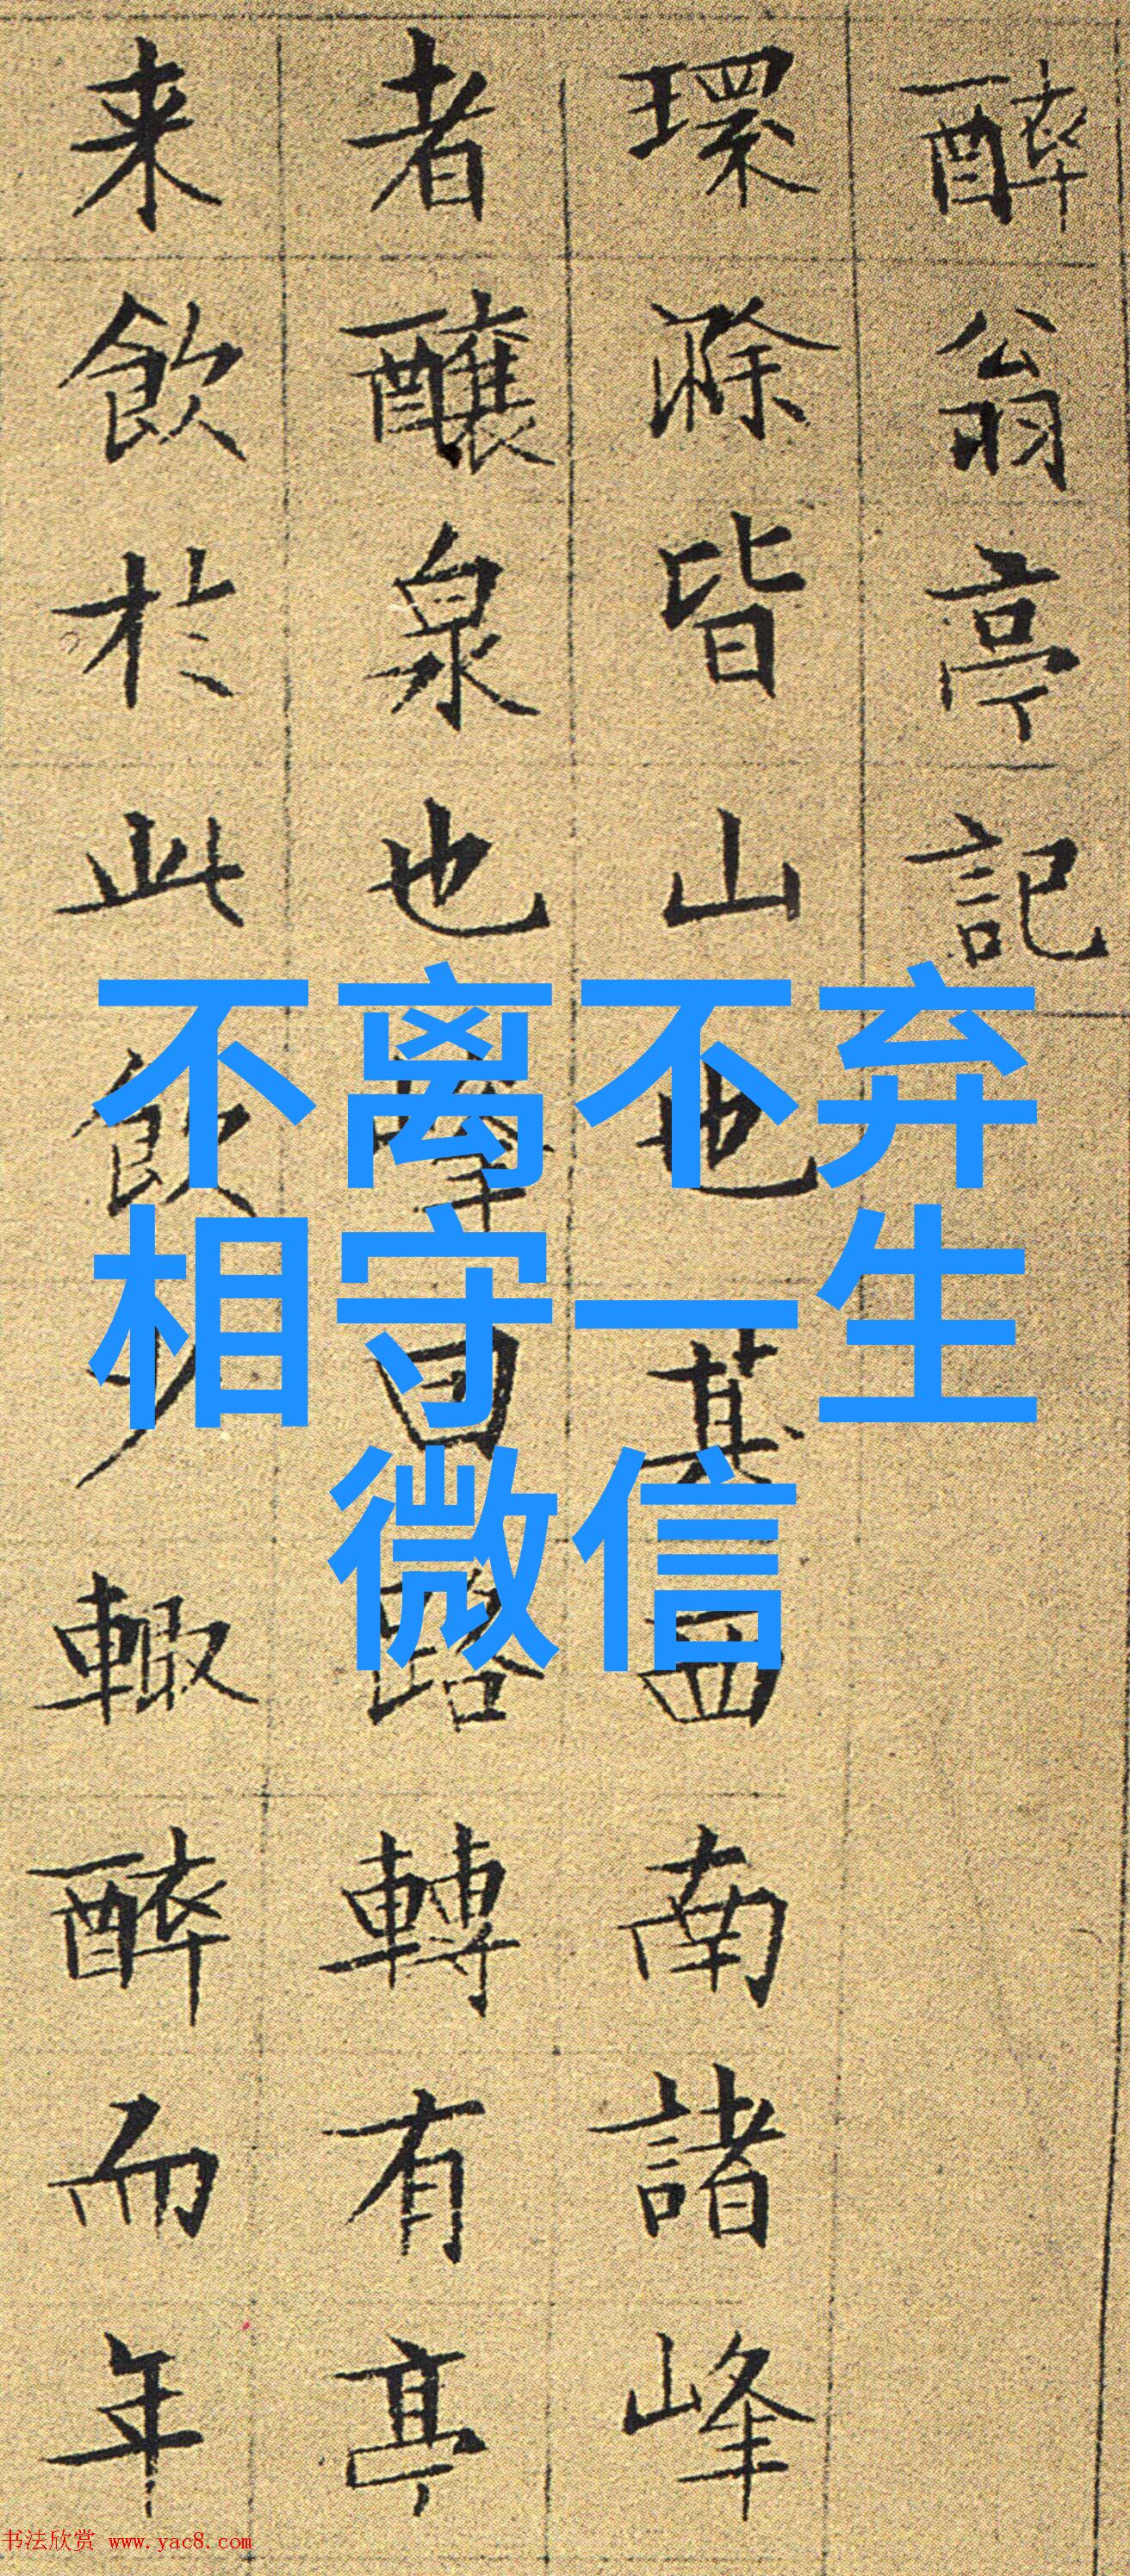 醉翁亭記
環滁皆山也其西南諸峰
者釀泉也峰回路轉有亭
来飲於此飲少輒醉而年
不离不弃
相守一生
微信
书法欣赏 www.yac8.com